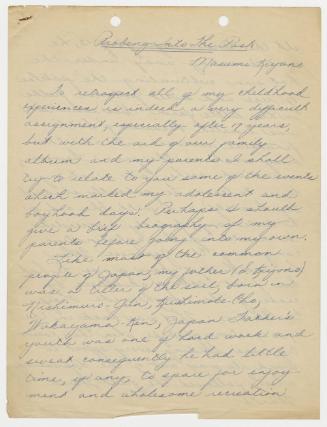 Probeing Into The Past
Masumi Kiyono
To retrospect all of my childhood
experiences is indeed a very difficult
assignment, especially after 17 years,
but with the aid of our family
album and my parents I shall
try to relate to you some of the events
which marked my adolescent and
boyhood days. Perhaps I should
give a brief biography of my
parents before going into my own.
Like mass of the common
people of Japan, my father
was a tiller of the soil, born in
Nishimuro-Gun, Kushimoto-Cho,
Wakayama-Ken, Japan Father's
youth was one of hard work and
sweat consequently he had little
time, if any, to spare for enjoy-
ment and wholesome recreation